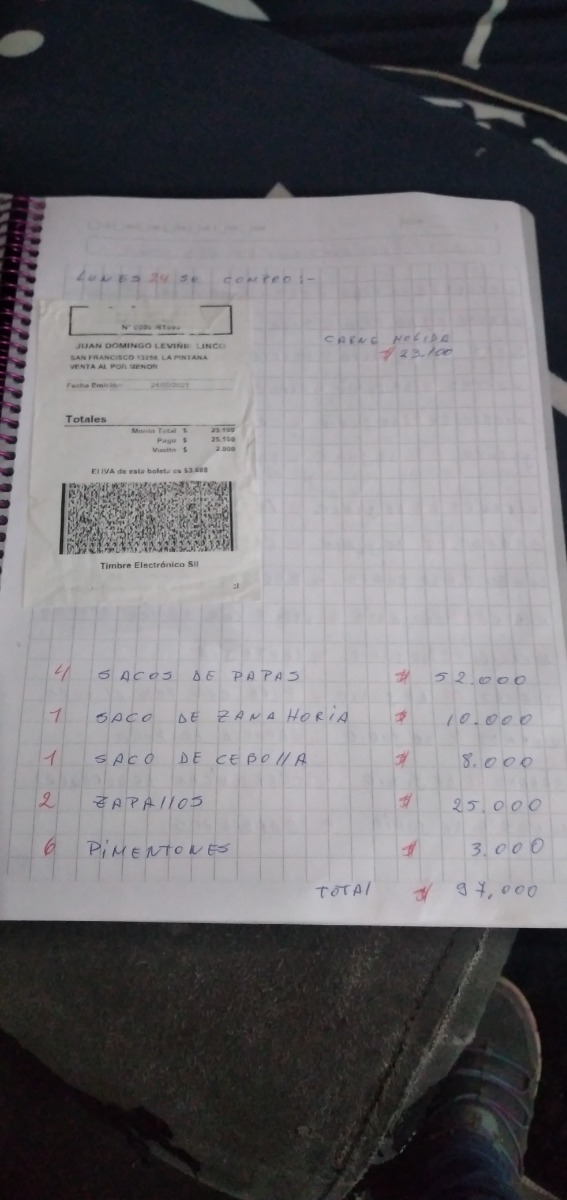 LUNES 24 SE COMPRO:-
N°
JUAN DOMINGO LEVIÑE LINCO
SAN FRANCISCO 13256 LA PINTANA
VENTA AL POR MENOR
Fecha Emisión
Totales
Monto Total $ 23.100
Pago $ 25.100
Vuelto $ 2.000
El IVA de esta boleta es $3.688
Timbre Electrónico SII
CARNE MOLIDA
$ 23.100
4 SACOS DE PAPAS $ 52.000
1 SACO DE ZANAHORIA $ 10.000
1 SACO DE CEBOLLA $ 8.000
2 ZAPALLOS $ 25.000
6 PIMENTONES $ 3.000
TOTAL $ 97.000